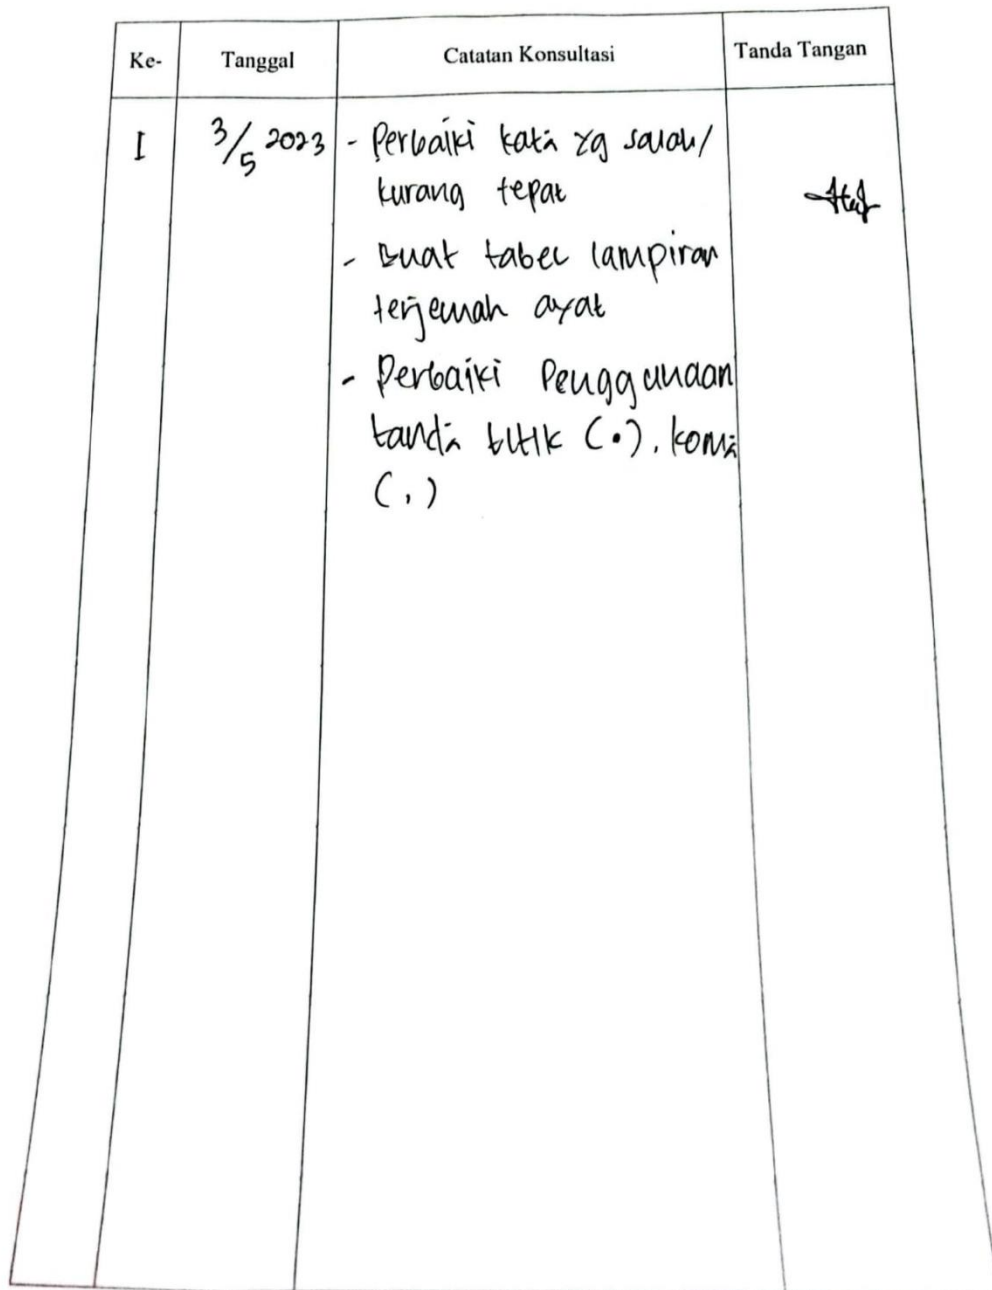 Ke- Tanggal Catatan Konsultasi Tanda Tangan
I 3/5 2023 - Perbaiki kata yg salah/
kurang tepat
- Buat tabel lampiran
terjemah ayat
- Perbaiki Penggunaan
tanda titik (.), koma
(,)